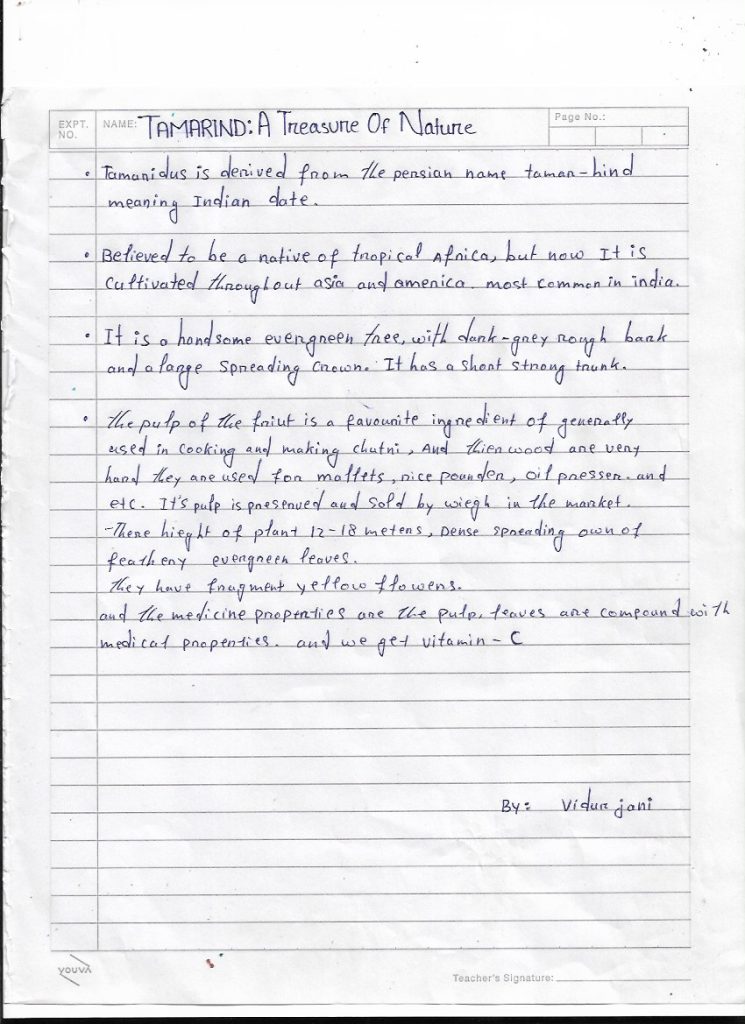 EXPT. NO. NAME: TAMARIND: A Treasure Of Nature Page No.:
• Tamaridus is derived from the persian name tamar-hind
meaning Indian date.
• Believed to be a native of tropical Africa, but now It is
Cultivated throughout asia and america. most common in india.
• It is a handsome evergreen tree, with dark-grey rough bark
and a large spreading crown. It has a short strong trunk.
• the pulp of the friut is a favourite ingredient of generally
used in cooking and making chutni, And thier wood are very
hard they are used for mallets, rice pounder, oil presser. and
etc. It's pulp is preserved and sold by wiegh in the market.
-There hieght of plant 12-18 meters, Dense spreading own of
feathery evergreen leaves.
they have fragment yellow flowers.
and the medicine properties are the pulp, leaves are compound with
medical properties. and we get vitamin - C
By: Vidur jani
youva
Teacher's Signature: